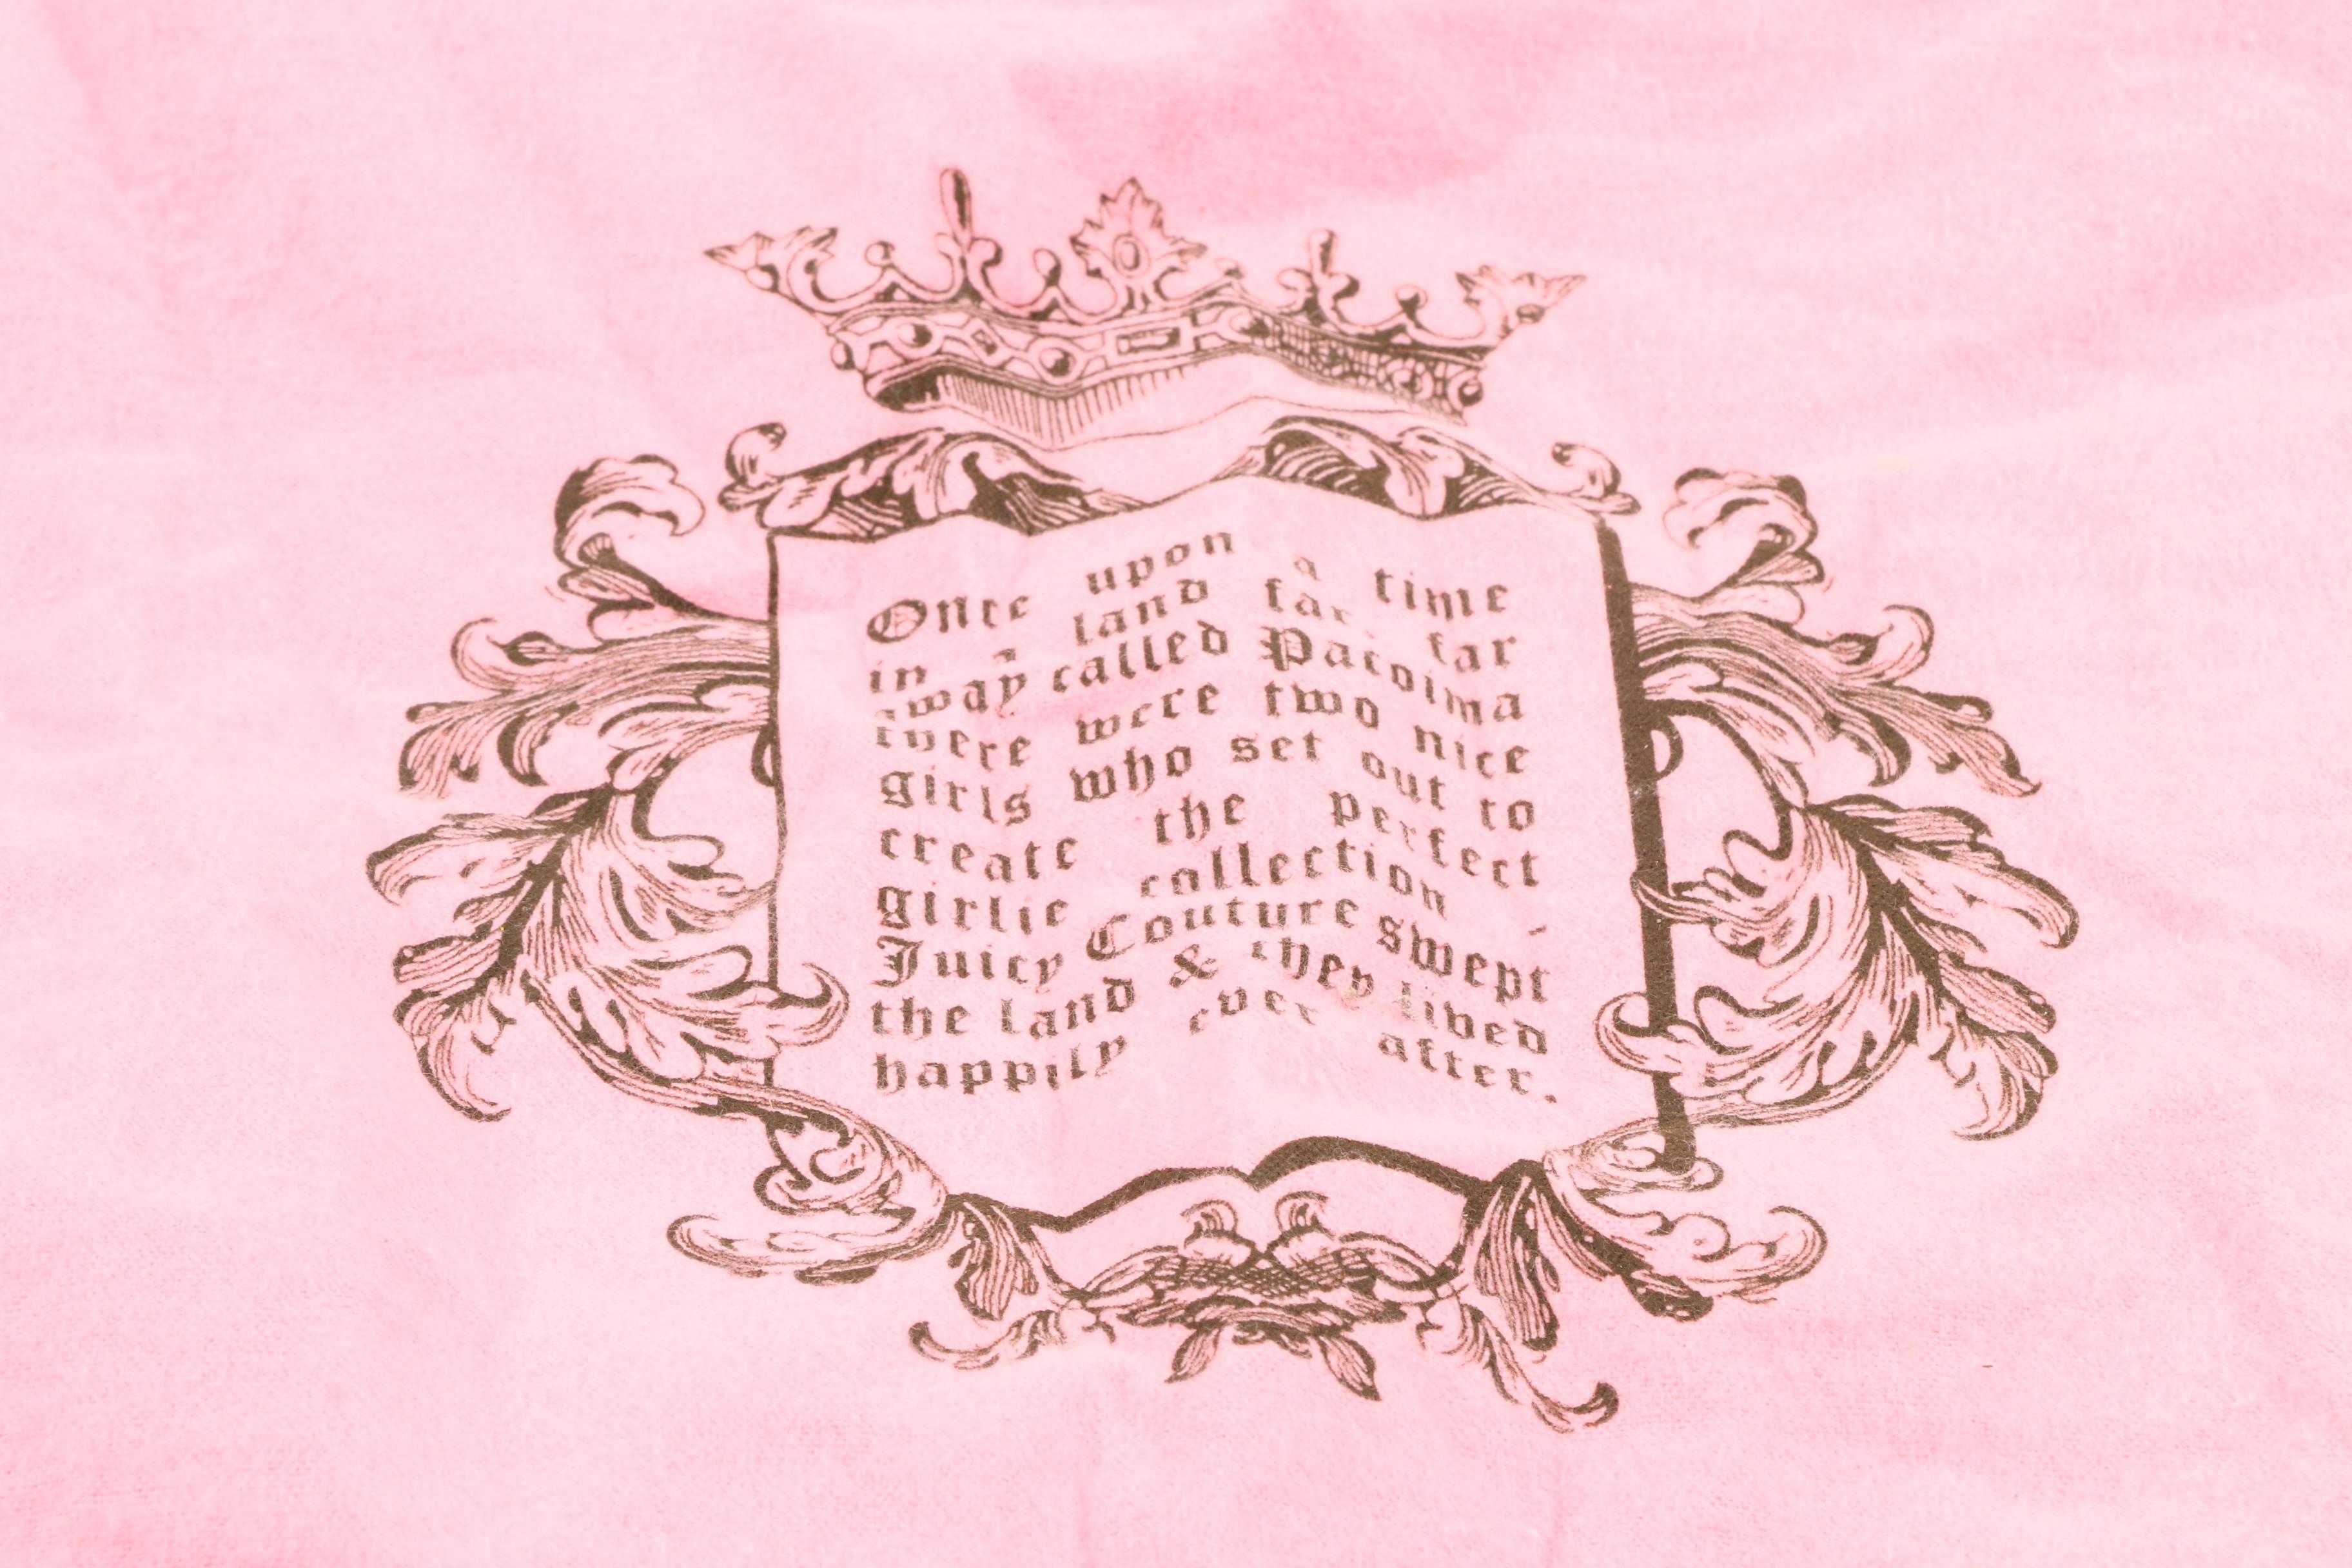 Once upon a time
in a land far, far
away called Pacoima
there were two nice
girls who set out to
create the perfect
girlie collection -
Juicy Couture swept
the land & they lived
happily ever after.